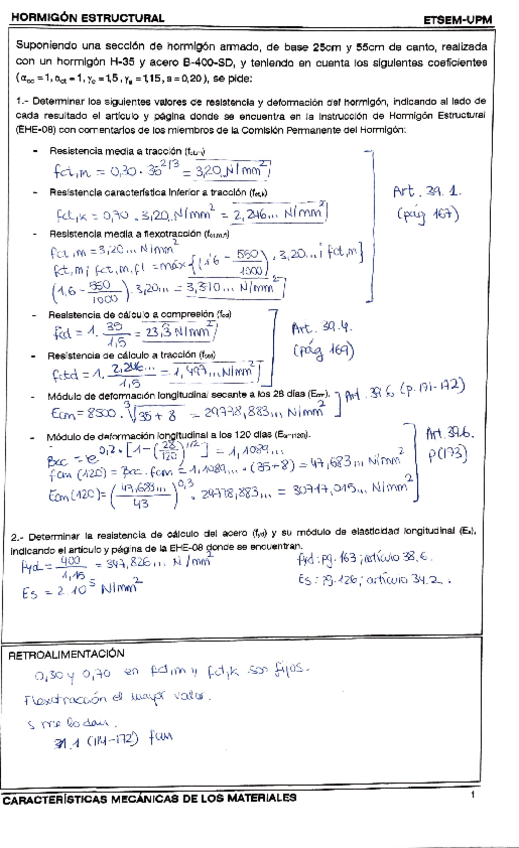 HORMIGÓN ESTRUCTURAL
ETSEM-UPM
Suponiendo una sección de hormigón armado, de base 25cm y 55cm de canto, realizada
con un hormigón H-35 y acero B-400-SD, y teniendo en cuenta los siguientes coeficientes
(αcc = 1, αct = 1, γc = 1,5, γs = 1,15, s = 0,20), se pide:
1.- Determinar los siguientes valores de resistencia y deformación del hormigón, indicando al lado de
cada resultado el artículo y página donde se encuentra en la Instrucción de Hormigón Estructural
(EHE-08) con comentarios de los miembros de la Comisión Permanente del Hormigón:
- Resistencia media a tracción (fct,m)
fct,m = 0,30 · 35^2/3 = 3,20 N/mm²
- Resistencia característica inferior a tracción (fct,k)
fct,k = 0,70 · 3,20 N/mm² = 2,246... N/mm²
Art. 39.1.
(pág 167)
- Resistencia media a flexotracción (fct,m,fl)
fct,m = 3,20... N/mm²
fct,m; fct,m,fl = máx {(1'6 - 550/1000) · 3,20...; fct,m}
(1,6 - 550/1000) · 3,20... = 3,370... N/mm²
- Resistencia de cálculo a compresión (fcd)
fcd = 1 · 35/1,5 = 23,3 N/mm²
Art. 39.4.
(pág 169)
- Resistencia de cálculo a tracción (fctd)
fctd = 1 · 2,246.../1,5 = 1,497... N/mm²
- Módulo de deformación longitudinal secante a los 28 días (Ecm).
Ecm = 8500 · ∛35 + 8 = 29778,883... N/mm²
Art. 39.6 (p. 171-172)
- Módulo de deformación longitudinal a los 120 días (Ecm-120).
Bcc = e^0,2 · [1 - (28/120)^1/2] = 1,1089...
fcm (120) = Bcc · fcm = 1,1089... · (35+8) = 47,683... N/mm²
Ecm (120) = (47,683.../43)^0,3 · 29778,883... = 30717,015... N/mm²
Art. 39.6.
p(173)
2.- Determinar la resistencia de cálculo del acero (fyd) y su módulo de elasticidad longitudinal (Es),
indicando el artículo y página de la EHE-08 donde se encuentran.
fyd = 400/1,15 = 347,826... N/mm²
fyd: pg. 163; artículo 38.6.
Es = 2·10⁵ N/mm²
Es: pg. 126; artículo 34.2.
RETROALIMENTACIÓN
0,30 y 0,70 en fct,m y fct,k son fijos.
Flexotracción el mayor valor.
s me lo dan.
31.1 (114-172) fcm
CARACTERÍSTICAS MECÁNICAS DE LOS MATERIALES
1